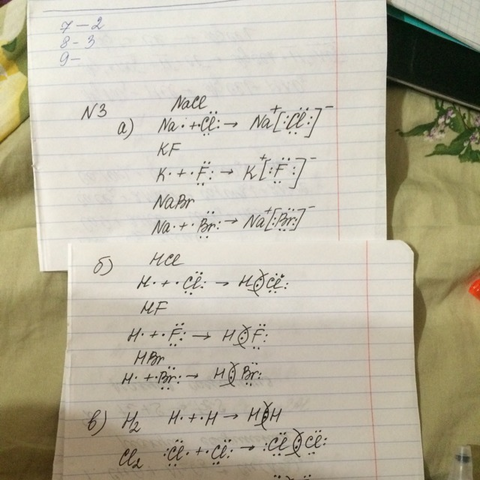 7 - 2
8 - 3
9 -
N3
NaCl
а) Na· + ·C̈l: → Na⁺[:C̈l:]⁻
KF
K· + ·F̈: → K⁺[:F̈:]⁻
NaBr
Na· + ·B̈r: → Na⁺[:B̈r:]⁻
б) HCl
H· + ·C̈l: → H(:)C̈l:
HF
H· + ·F̈: → H(:)F̈:
HBr
H· + ·B̈r: → H(:)B̈r:
в) H₂ H· + ·H → H(:)H
Cl₂ :C̈l· + ·C̈l: → :C̈l(:)C̈l: